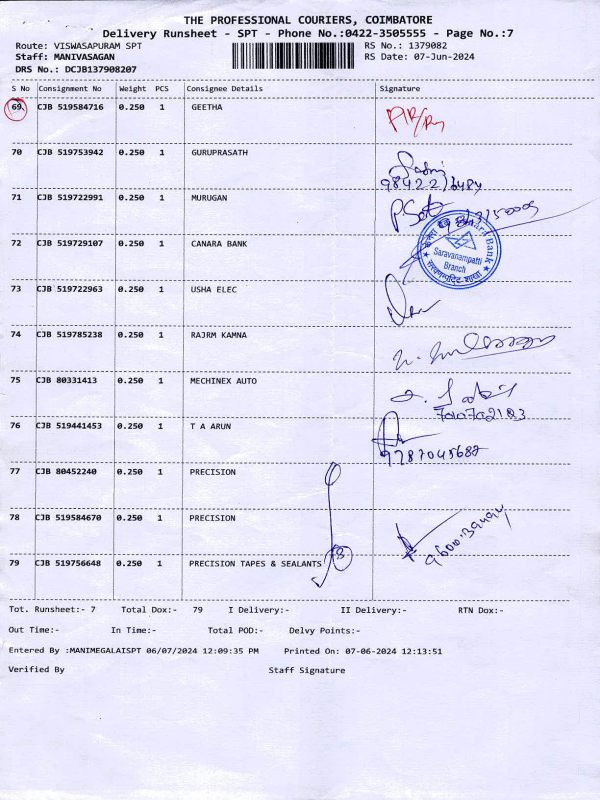 THE PROFESSIONAL COURIERS, COIMBATORE
Delivery Runsheet - SPT - Phone No.:0422-3505555 - Page No.:7
Route: VISWASAPURAM SPT RS No.: 1379082
Staff: MANIVASAGAN RS Date: 07-Jun-2024
DRS No.: DCJB137908207
S No Consignment No Weight PCS Consignee Details Signature
69 CJB 519584716 0.250 1 GEETHA
70 CJB 519753942 0.250 1 GURUPRASATH
71 CJB 519722991 0.250 1 MURUGAN
72 CJB 519729107 0.250 1 CANARA BANK
Saravanampatti
Branch
73 CJB 519722963 0.250 1 USHA ELEC
74 CJB 519785238 0.250 1 RAJRM KAMNA
75 CJB 80331413 0.250 1 MECHINEX AUTO
76 CJB 519441453 0.250 1 T A ARUN
9787045687
77 CJB 80452240 0.250 1 PRECISION
78 CJB 519584670 0.250 1 PRECISION
79 CJB 519756648 0.250 1 PRECISION TAPES & SEALANTS
Tot. Runsheet:- 7 Total Dox:- 79 I Delivery:- II Delivery:- RTN Dox:-
Out Time:- In Time:- Total POD:- Delvy Points:-
Entered By :MANIMEGALAISPT 06/07/2024 12:09:35 PM Printed On: 07-06-2024 12:13:51
Verified By Staff Signature